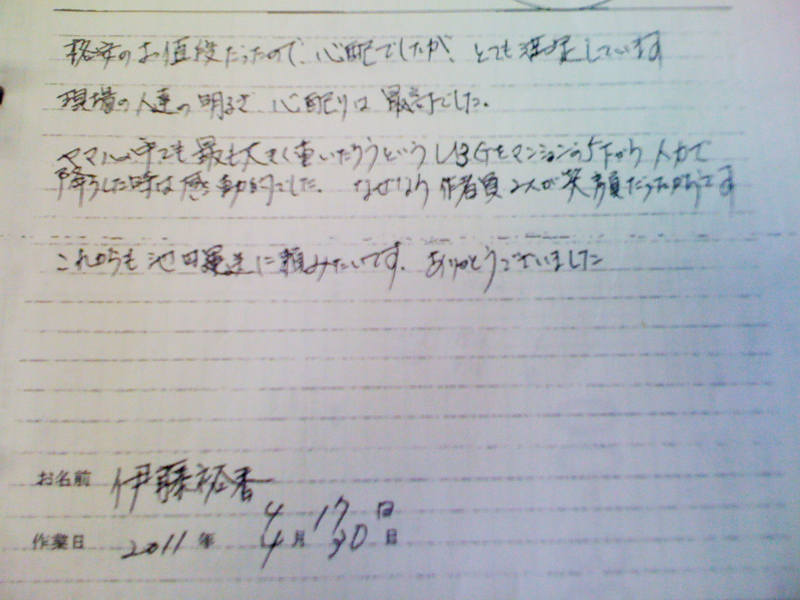 格安のお値段だったので、心配でしたが、とても満足しています
現場の人達の明るさ、心配りは最高でした。
ヤマハの中でも最も大きく重いだろうというU3Gをマンションの5Fから人力で
降ろした時は感動的でした。なぜなら作業員2人が笑顔だったからです
これからも池田運送に頼みたいです。ありがとうございました
お名前 伊藤裕香
4 17 日
作業日 2011 年 4 月 30 日